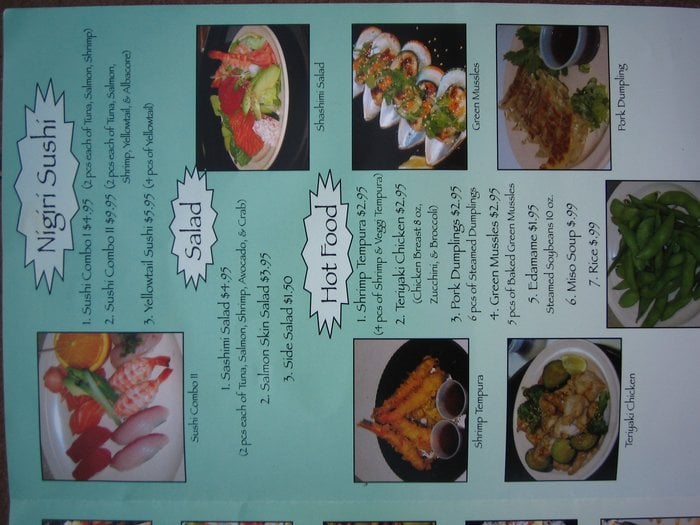 Nigiri Sushi
1. Sushi Combo I $4.95 (2 pcs each of Tuna, Salmon, Shrimp)
2. Sushi Combo II $9.95 (2 pcs each of Tuna, Salmon,
shrimp, Yellowtail, & Albacore)
3. Yellowtail Sushi $5.95 (4 pcs of Yellowtail)
Sushi Combo II
Salad
1. Sashimi Salad $4.95
(2 pcs each of Tuna, Salmon, Shrimp, Avocado, & Crab)
2. Salmon Skin Salad $3.95
3. Side Salad $1.50
Shashimi Salad
Hot Food
1. Shrimp Tempura $2.95
(4 pcs of Shrimp & Veggi Tempura)
2. Teriyaki Chicken $2.95
(Chicken Breast 8 oz,
Zucchini, & Broccoli)
3. Pork Dumplings $2.95
6 pcs of Steamed Dumplings
4. Green Mussles $2.95
5 pcs of Baked Green Mussles
5. Edamame $1.95
Steamed Soybeans 10 oz.
6. Miso Soup $.99
7. Rice $.99
Shrimp Tempura
Green Mussles
Teriyaki Chicken
Pork Dumpling